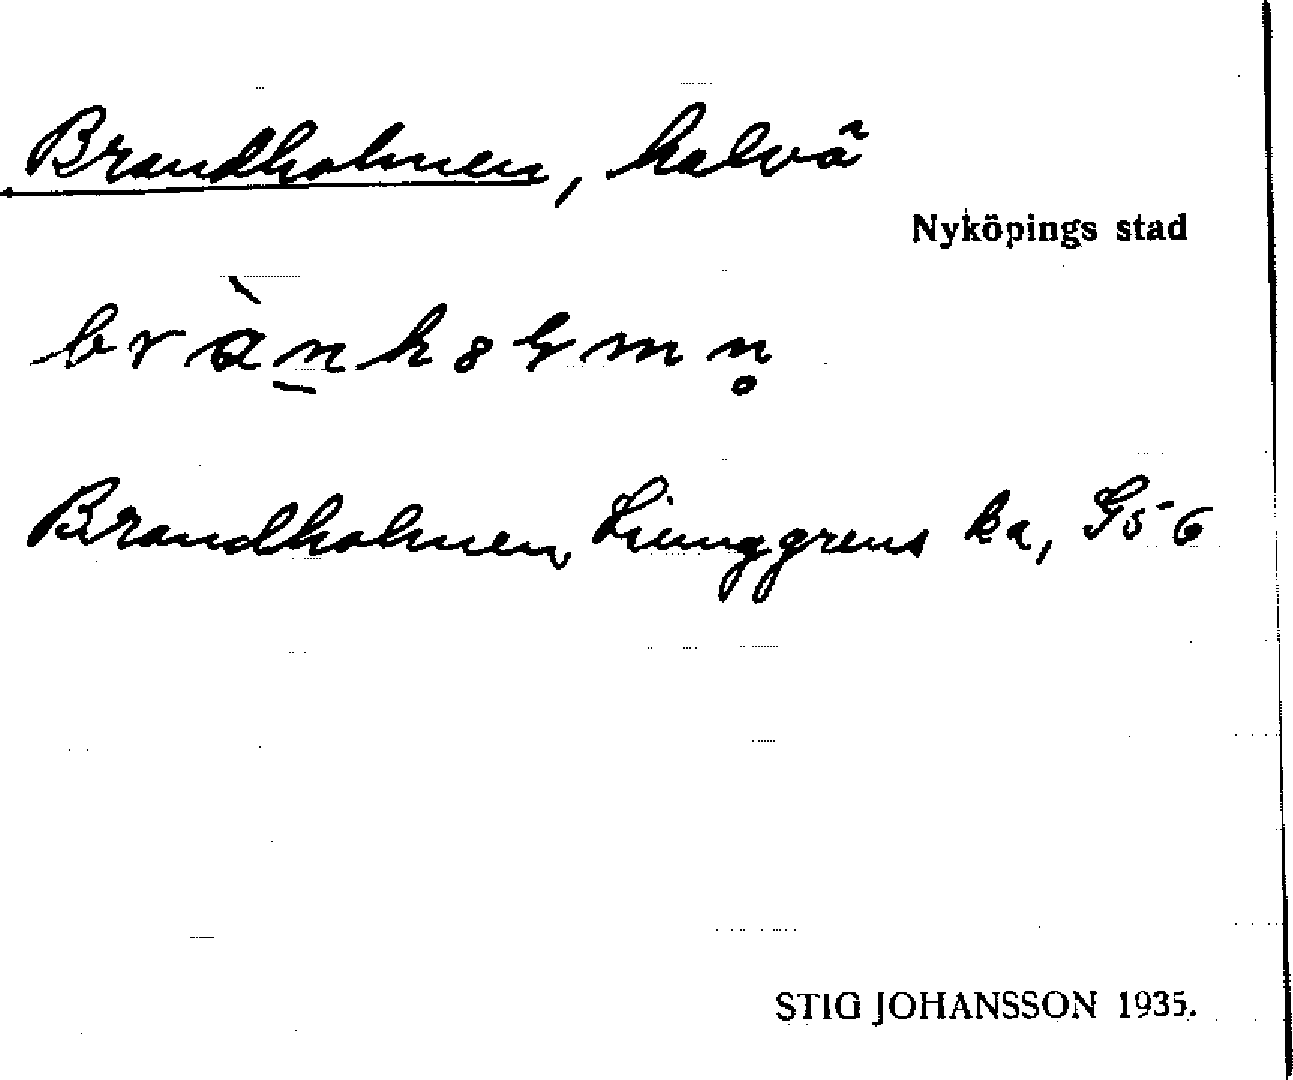 Brandholmen, halvö
Nyköpings stad
Brandholmen, Liunggrens ka, Gs 6
STIG JOHANSSON 1935.